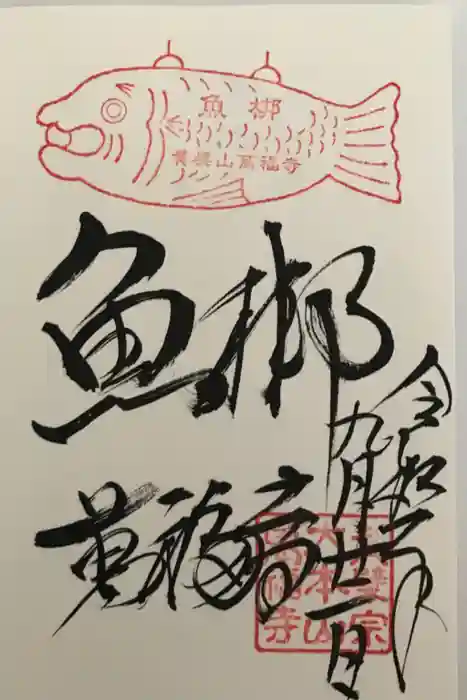 魚梆
黄檗山萬福寺
魚梆
令和
九月廿一日
萬福寺
黄檗宗
大本山
萬福寺